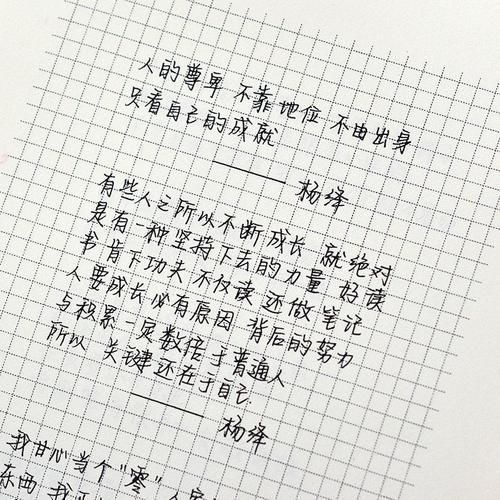 人的尊卑 不靠地位 不由出身
只看自己的成就
——— 杨绛
有些人之所以不断成长 就绝对
是有一种坚持下去的力量 好读
书 肯下功夫 不仅读 还做笔记
人要成长 必有原因 背后的努力
与积累一定数倍于普通人
所以 关键还在于自己.
——— 杨绛
我甘心当个“零”人
东西 我